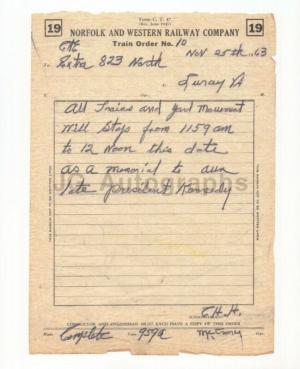 Form C. T. 47
19 NORFOLK AND WESTERN RAILWAY COMPANY 19
Train Order No. 10
C&E
Nov 25th 63
To Extra 823 North
At Luray VA
All Trains and yard Movement
Will Stop from 1159 am
to 12 Noon this date
as a Memorial to our
late president Kennedy
JG Autographs
C.H.H.
CONDUCTOR AND ENGINEMAN MUST EACH HAVE A COPY OF THIS ORDER
Made Complete Time 959 A Opr.